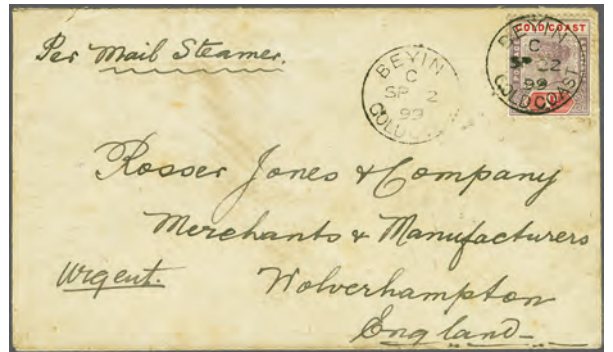 Per Mail Steamer.
BEYIN
C
SP 2
99
GOLD
GOLD COAST
BEYIN
C
SP 22
99
GOLD COAST
Rosser Jones & Company
Merchants & Manufacturers
Urgent.
Wolverhampton
England